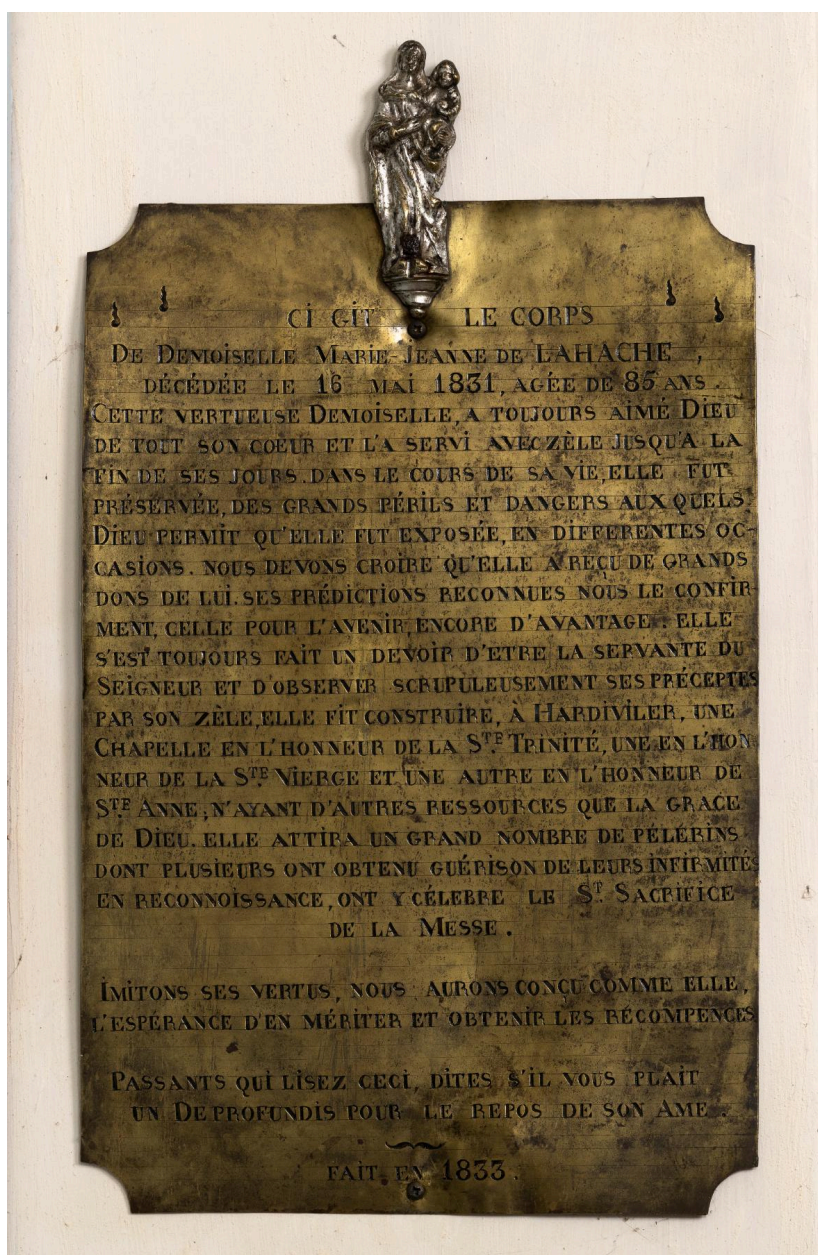 CI GIT LE CORPS
DE DEMOISELLE MARIE-JEANNE DE LAHACHE,
DÉCÉDÉE LE 16 MAI 1831, AGÉE DE 85 ANS.
CETTE VERTUEUSE DEMOISELLE, A TOUJOURS AIMÉ DIEU
DE TOUT SON COEUR ET L'A SERVI AVEC ZÈLE JUSQU'A LA
FIN DE SES JOURS. DANS LE COURS DE SA VIE, ELLE FUT
PRÉSERVÉE, DES GRANDS PÉRILS ET DANGERS AUX QUELS
DIEU PERMIT QU'ELLE FUT EXPOSÉE, EN DIFFERENTES OC-
CASIONS. NOUS DEVONS CROIRE QU'ELLE A REÇU DE GRANDS
DONS DE LUI. SES PRÉDICTIONS RECONNUES NOUS LE CONFIR-
MENT, CELLE POUR L'AVENIR, ENCORE D'AVANTAGE: ELLE
S'EST TOUJOURS FAIT UN DEVOIR D'ETRE LA SERVANTE DU
SEIGNEUR ET D'OBSERVER SCRUPULEUSEMENT SES PRÉCEPTES
PAR SON ZÈLE, ELLE FIT CONSTRUIRE, À HARDIVILER, UNE
CHAPELLE EN L'HONNEUR DE LA STE. TRINITÉ, UNE EN L'HON-
NEUR DE LA STE. VIERGE ET UNE AUTRE EN L'HONNEUR DE
STE. ANNE; N'AYANT D'AUTRES RESSOURCES QUE LA GRACE
DE DIEU. ELLE ATTIRA UN GRAND NOMBRE DE PÉLÉRINS
DONT PLUSIEURS ONT OBTENU GUÉRISON DE LEURS INFIRMITÉS
EN RECONNOISSANCE, ONT Y CÉLEBRE LE ST. SACRIFICE
DE LA MESSE.
IMITONS SES VERTUS, NOUS AURONS CONÇU COMME ELLE,
L'ESPÉRANCE D'EN MÉRITER ET OBTENIR LES RÉCOMPENCES
PASSANTS QUI LISEZ CECI, DITES S'IL VOUS PLAIT
UN DE PROFUNDIS POUR LE REPOS DE SON AME.
FAIT EN 1833.